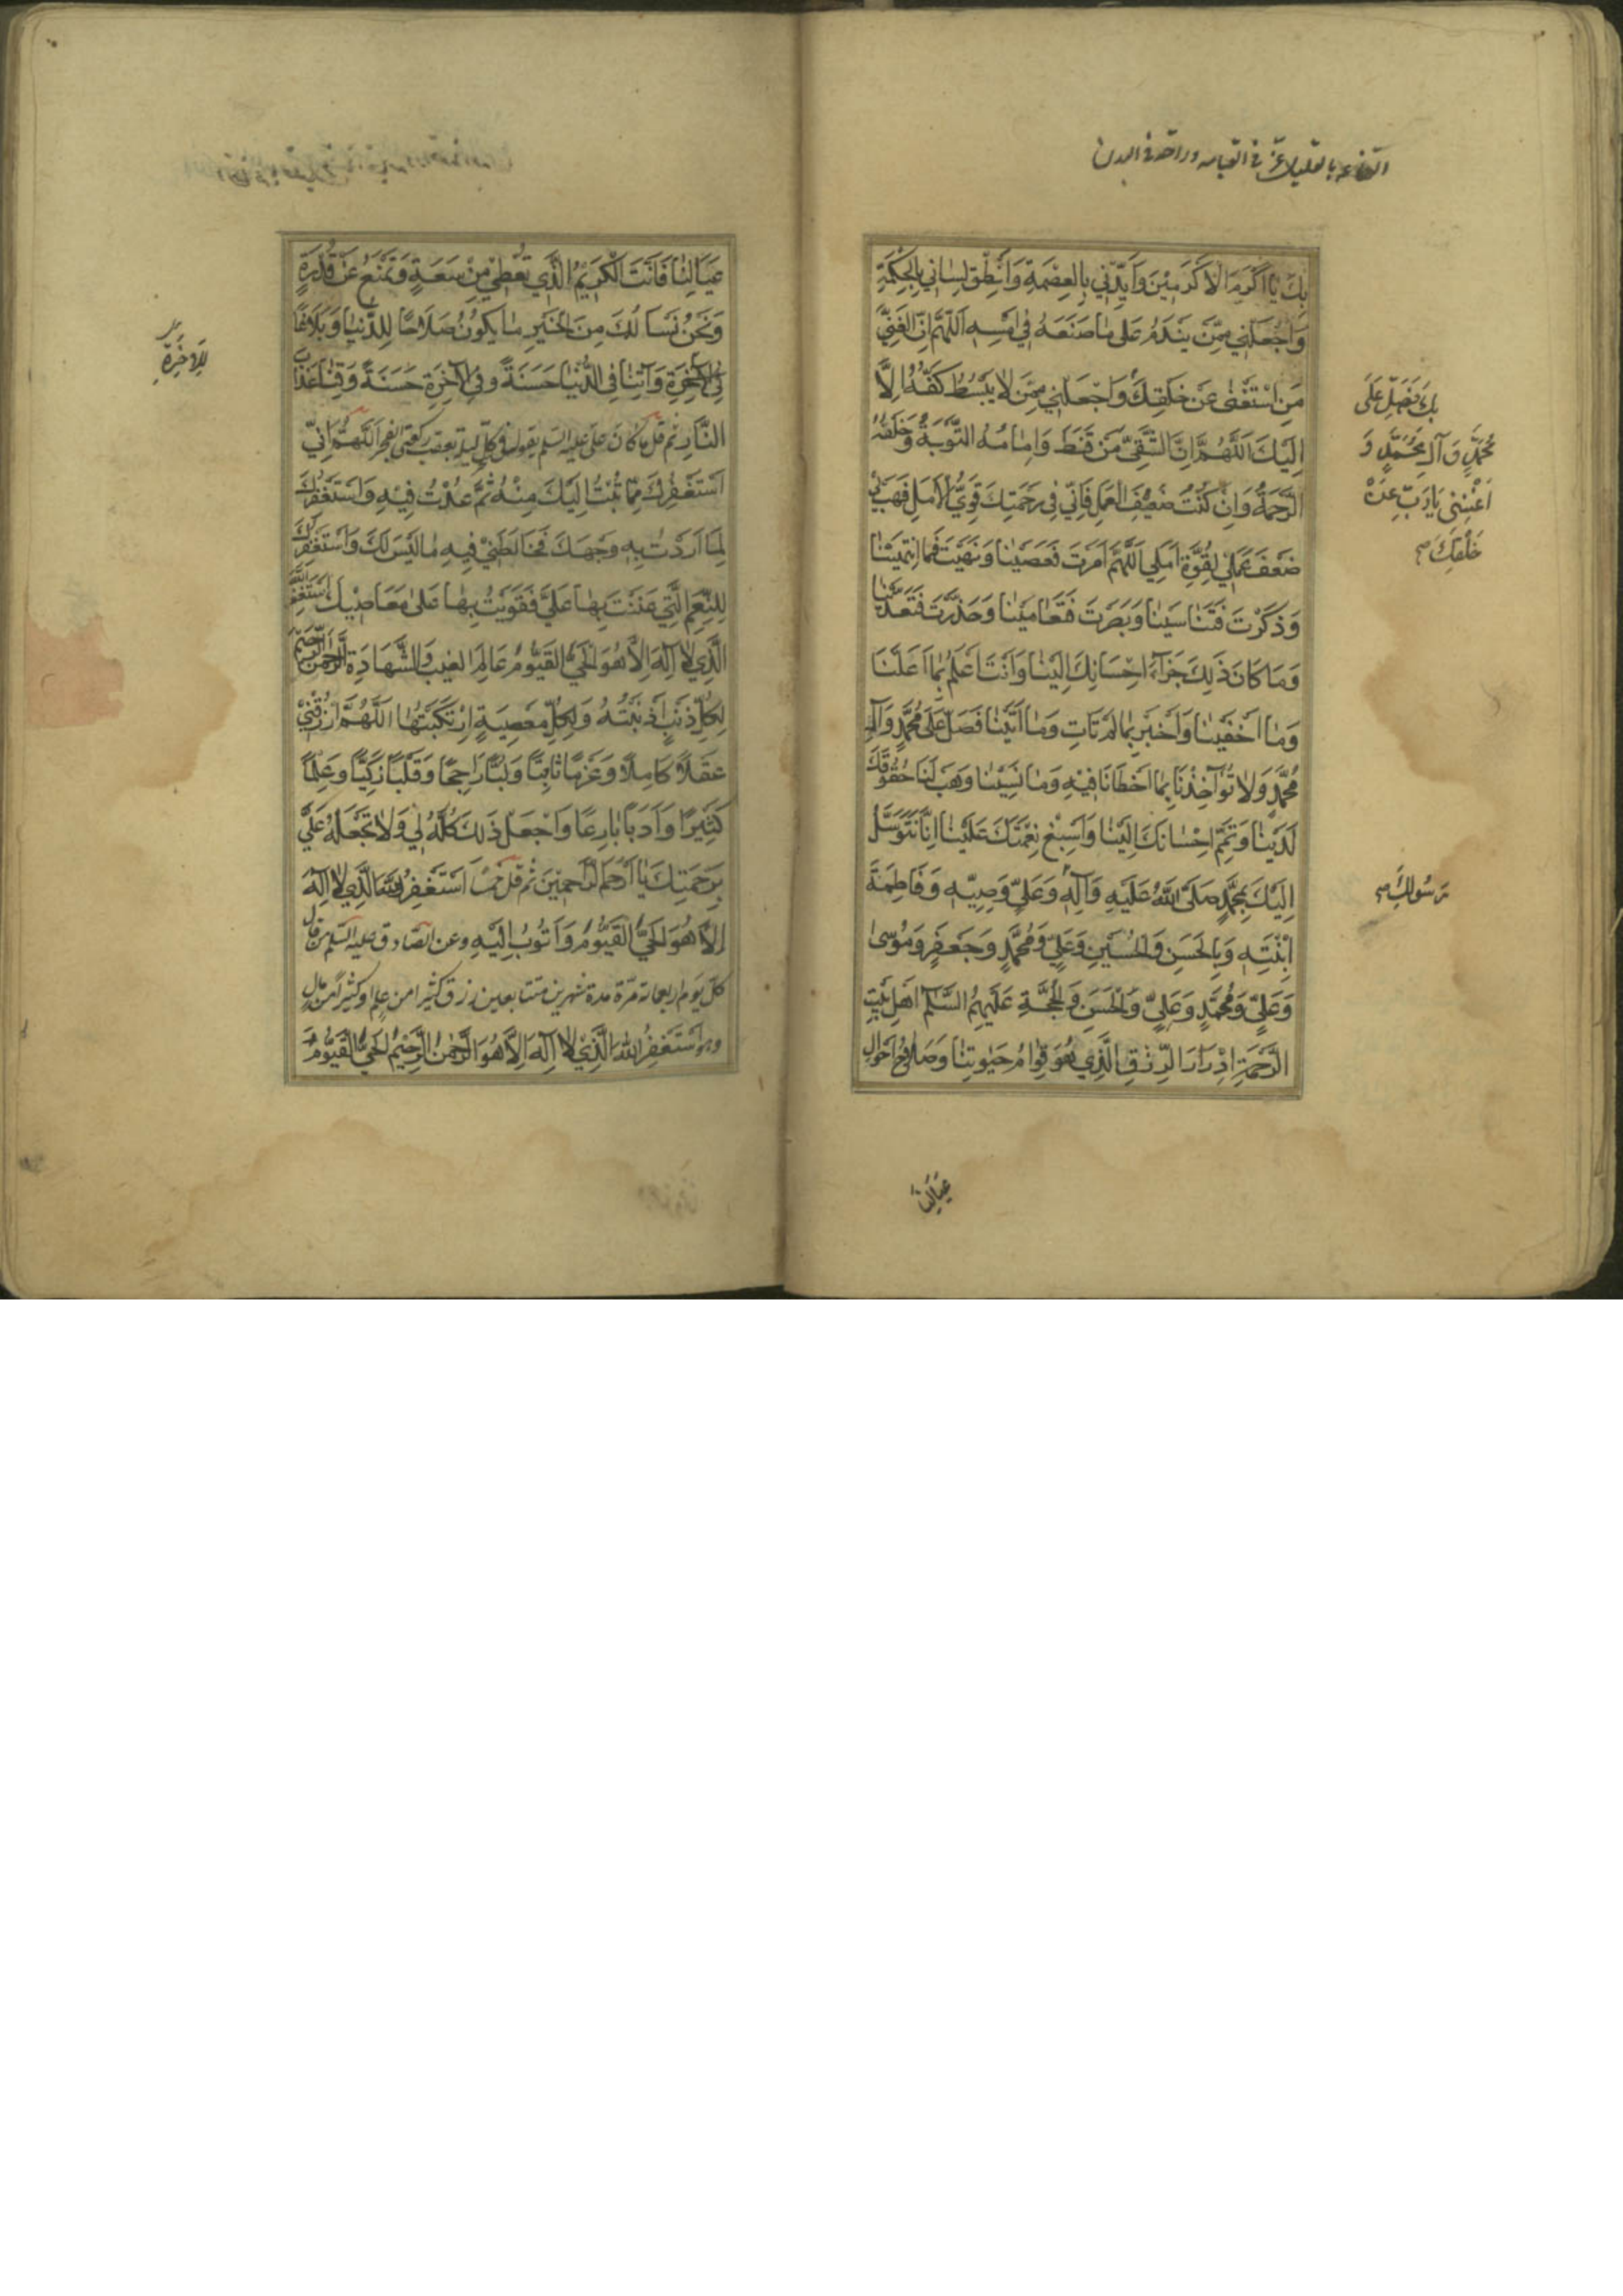 القناعة بالقليل عز في القيامه وراحة في البدن
بِكَ يَا اَكْرَمَ الْاَكْرَمِيْنَ وَاَيِّدْنِي بِالْعِصْمَةِ وَاَنْطِقْ لِسَانِي بِالْحِكْمَةِ
وَاجْعَلْنِي مِمَّنْ يَنْدَمُ عَلَى مَا صَنَعَهُ فِي اَمْسِهِ اَللّٰهُمَّ اِنَّ الْغَنِيَّ
مَنِ اسْتَغْنٰى عَنْ خَلْقِكَ وَاجْعَلْنِي مِمَّنْ لَا يَبْسُطُ كَفَّهُ اِلَّا
بِكَ فَصَلِّ عَلَى
مُحَمَّدٍ وَ آلِ مُحَمَّدٍ وَ
اَغْنِنِي يَا رَبِّ عَنْ
خَلْقِكَ صح
اِلَيْكَ اَللّٰهُمَّ اِنَّ الشَّقِيَّ مَنْ قَنَطَ وَاَمَامُهُ التَّوْبَةُ وَخَلْفَهُ
الرَّحْمَةُ وَاِنْ كُنْتُ ضَعِيْفَ الْعَمَلِ فَاِنِّي فِي رَحْمَتِكَ قَوِيُّ الْاَمَلِ فَهَبْ لِي
ضَعْفَ عَمَلِي لِقُوَّةِ اَمَلِي اَللّٰهُمَّ اَمَرْتَ فَعَصَيْنَا وَنَهَيْتَ فَمَا انْتَهَيْنَا
وَذَكَّرْتَ فَتَنَاسَيْنَا وَبَصَّرْتَ فَتَعَامَيْنَا وَحَذَّرْتَ فَتَعَدَّيْنَا
وَمَا كَانَ ذٰلِكَ جَزَاءَ اِحْسَانِكَ اِلَيْنَا وَاَنْتَ اَعْلَمُ بِمَا اَعْلَنَّا
وَمَا اَخْفَيْنَا وَاَخْبَرُ بِمَا لَمْ نَأْتِ وَمَا اَتَيْنَا فَصَلِّ عَلَى مُحَمَّدٍ وَآلِ
مُحَمَّدٍ وَلَا تُؤَاخِذْنَا بِمَا اَخْطَأْنَا فِيْهِ وَمَا نَسِيْنَا وَهَبْ لَنَا حُقُوقَكَ
لَدَيْنَا وَتَمِّمْ اِحْسَانَكَ اِلَيْنَا وَاَسْبِغْ نِعْمَتَكَ عَلَيْنَا اِنَّا نَتَوَسَّلُ
اِلَيْكَ بِمُحَمَّدٍ صَلَّى اللّٰهُ عَلَيْهِ وَآلِهِ وَعَلِيٍّ وَصِيِّهِ وَفَاطِمَةَ
رَسُولِكَ صح
اِبْنَتِهِ وَبِالْحَسَنِ وَالْحُسَيْنِ وَعَلِيٍّ وَمُحَمَّدٍ وَجَعْفَرٍ وَمُوسٰى
وَعَلِيٍّ وَمُحَمَّدٍ وَعَلِيٍّ وَالْحَسَنِ وَالْحُجَّةِ عَلَيْهِمُ السَّلٰمُ اَهْلِ بَيْتِ
الرَّحْمَةِ اِدْرَارَ الرِّزْقِ الَّذِي هُوَ قِوَامُ حَيٰوتِنَا وَصَلَاحُ اَحْوَالِ
عِيَالِنَا
عِيَالِنَا فَاَنْتَ الْكَرِيْمُ الَّذِي تُعْطِي مِنْ سَعَةٍ وَتَمْنَعُ عَنْ قُدْرَةٍ
وَنَحْنُ نَسْاَلُكَ مِنَ الْخَيْرِ مَا يَكُوْنُ صَلَاحًا لِلدُّنْيَا وَبَلَاغًا
لِلْآخِرَةِ
فِي الْآخِرَةِ وَآتِنَا فِي الدُّنْيَا حَسَنَةً وَفِي الْآخِرَةِ حَسَنَةً وَقِنَا عَذَابَ
النَّارِ ثم قل ما كان علي عليه السلم يقوله في كل ليلة بعقب ركعتي الفجر اَللّٰهُمَّ اِنِّي
اَسْتَغْفِرُكَ مِمَّا تُبْتُ اِلَيْكَ مِنْهُ ثُمَّ عُدْتُ فِيْهِ وَاَسْتَغْفِرُكَ
لِمَا اَرَدْتُ بِهِ وَجْهَكَ فَخَالَطَنِيْ فِيْهِ مَا لَيْسَ لَكَ وَاَسْتَغْفِرُكَ
لِلنِّعَمِ الَّتِي مَنَنْتَ بِهَا عَلَيَّ فَقَوِيْتُ بِهَا عَلَى مَعَاصِيْكَ اَسْتَغْفِرُ اللّٰهَ
الَّذِي لَا اِلٰهَ اِلَّا هُوَ الْحَيُّ الْقَيُّوْمُ عَالِمُ الْغَيْبِ وَالشَّهَادَةِ الرَّحْمٰنُ الرَّحِيْمُ
لِكُلِّ ذَنْبٍ اَذْنَبْتُهُ وَلِكُلِّ مَعْصِيَةٍ اِرْتَكَبْتُهَا اَللّٰهُمَّ ارْزُقْنِيْ
عَقْلًا كَامِلًا وَعَزْمًا ثَاقِبًا وَلُبًّا رَاجِحًا وَقَلْبًا زَكِيًّا وَعِلْمًا
كَثِيْرًا وَاَدَبًا بَارِعًا وَاجْعَلْ ذٰلِكَ كُلَّهُ لِي وَلَا تَجْعَلْهُ عَلَيَّ
بِرَحْمَتِكَ يَا اَرْحَمَ الرَّاحِمِيْنَ ثم قل خمسا اَسْتَغْفِرُ اللّٰهَ الَّذِي لَا اِلٰهَ
اِلَّا هُوَ الْحَيُّ الْقَيُّوْمُ وَاَتُوْبُ اِلَيْهِ وعن الصادق عليه السلم من قال
كل يوم اربعمائة مرة مدة شهرين متتابعين رزق كثيرا من علم او كثيرا من مال
وهو اَسْتَغْفِرُ اللّٰهَ الَّذِيْ لَا اِلٰهَ اِلَّا هُوَ الرَّحْمٰنُ الرَّحِيْمُ الْحَيُّ الْقَيُّوْمُ